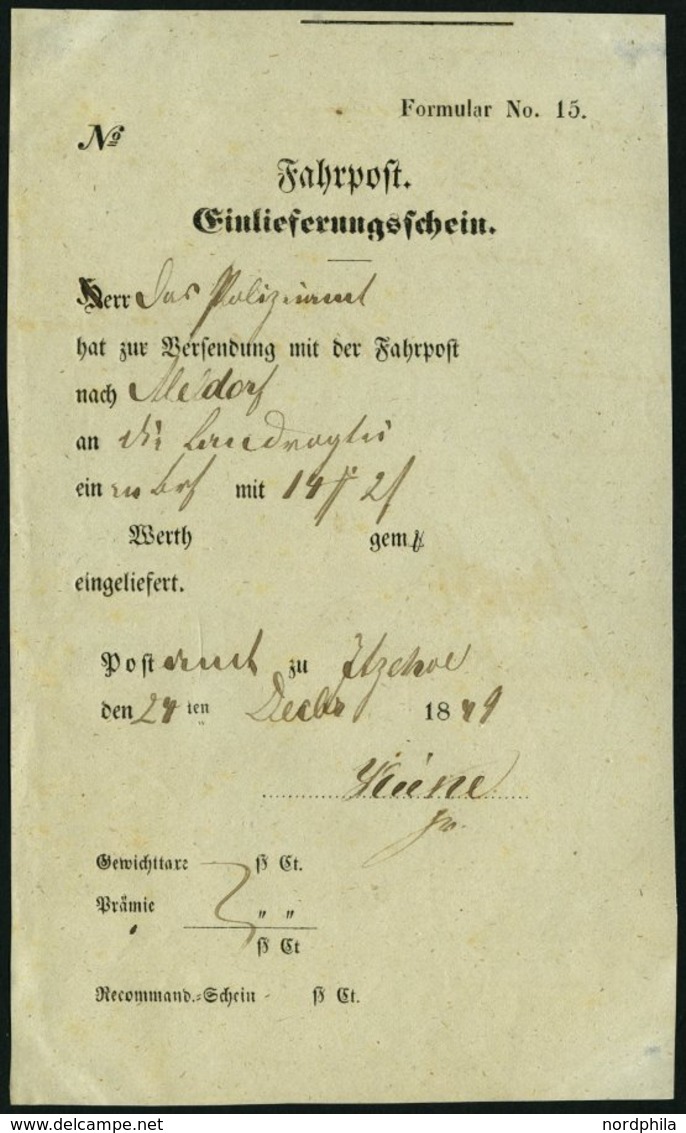 Formular No. 15.
No
Fahrpost.
Einlieferungsschein.
Herr Das Polizeiamt
hat zur Versendung mit der Fahrpost
nach Meldorf
an die Landvogtei
ein mit 14 ß 2
Werth gem
eingeliefert.
Postamt zu Itzehoe
den 24ten Decbr 1849
Gewichttaxe ß Ct.
Prämie " "
ß Ct
Recommand.-Schein - ß Ct.
nordphila